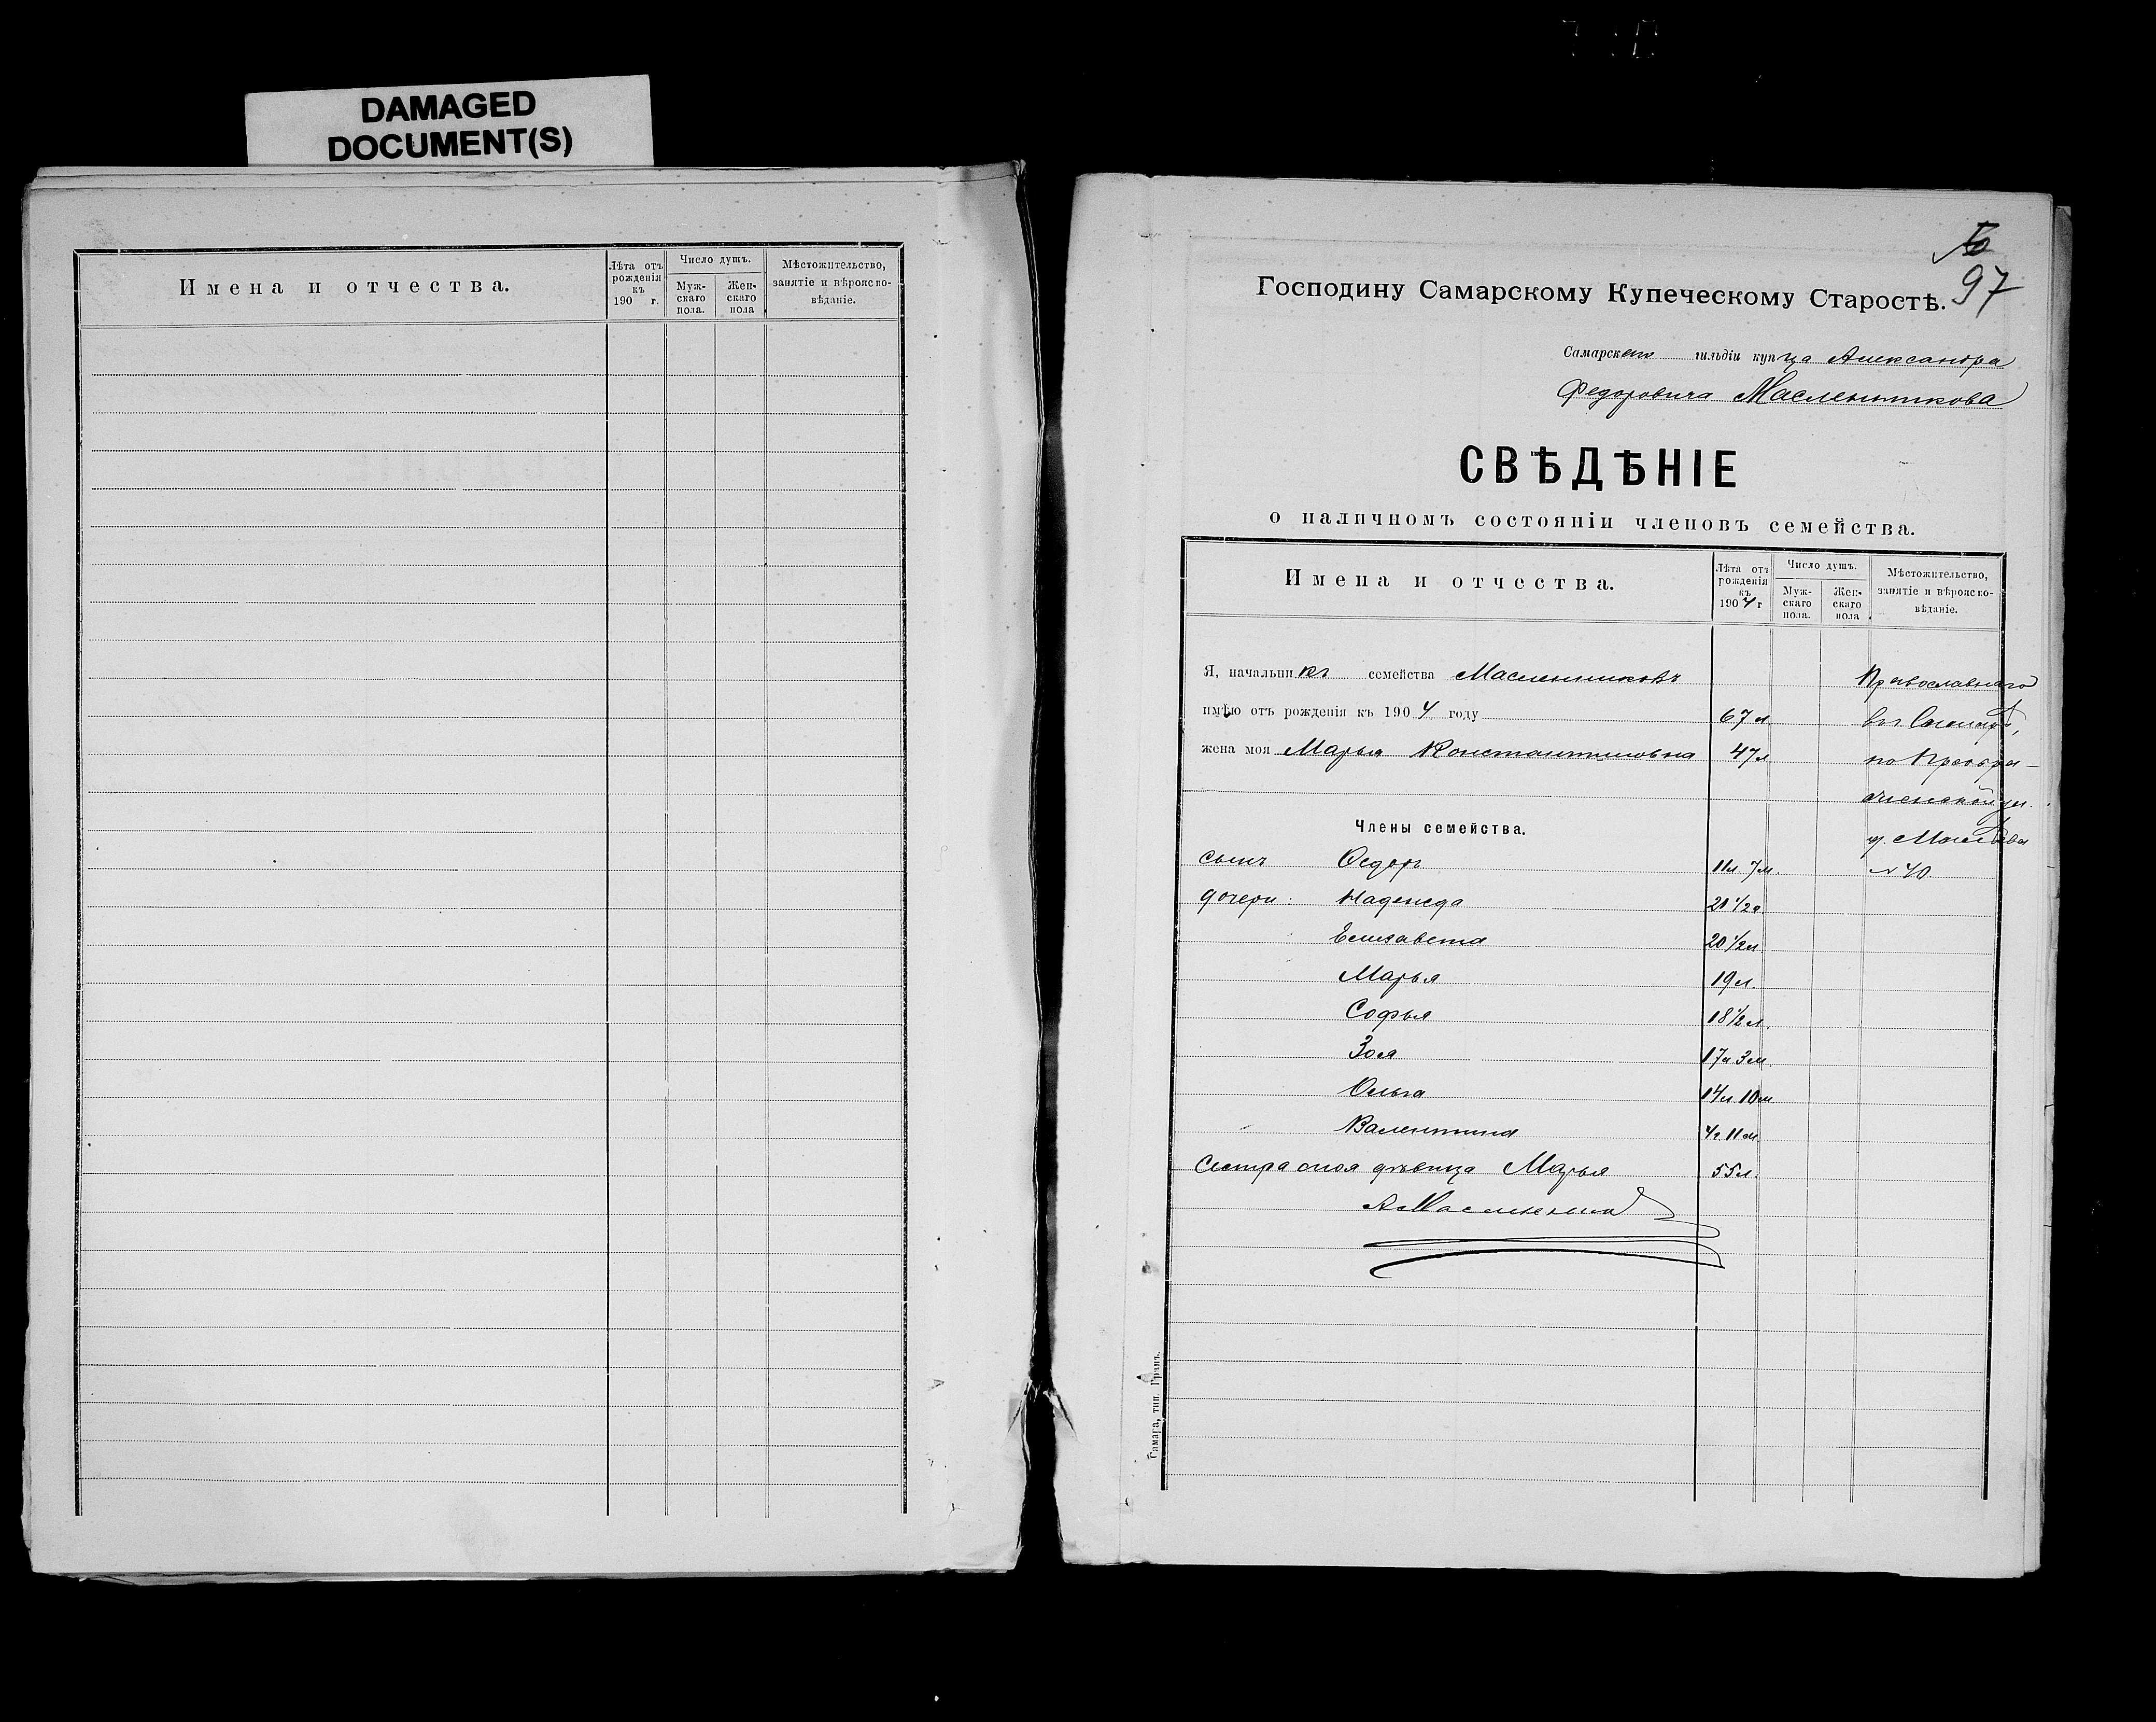 DAMAGED
DOCUMENT(S)
Имена и отчества.
Лѣта отъ рожденія къ 190 г.
Число душъ.
Мужскаго пола.
Женскаго пола
Мѣстожительство, занятіе и вѣроисповѣданіе.
97
Господину Самарскому Купеческому Старостѣ.
Самарскаго гильдіи купца Александра
Федоровича Масленникова
СВѢДѢНІЕ
о наличномъ состояніи членовъ семейства.
Имена и отчества.
Лѣта отъ рожденія къ 1904 г
Число душъ.
Мужскаго пола.
Женскаго пола
Мѣстожительство, занятіе и вѣроисповѣданіе.
Я, начальникъ семейства Масленниковъ Православнаго
имѣю отъ рожденія къ 1904 году 67 л въ г. Самарѣ,
жена моя Марья Константиновна 47 л по Преобра-
женской ул.
Члены семейства. д. Маслѣва
сынъ Ѳедоръ 11 л. 7 м. № 40
дочери: Надежда 21 1/2 г.
Елизавета 20 1/2 л
Марья 19 л.
Софья 18 1/2 л.
Зоя 17 л. 3 м.
Ольга 14 л. 10 м.
Валентина 4 г. 11 м.
Сестра моя дѣвица Марья 55 л.
АМасленник
Самара, тип. Гранъ.